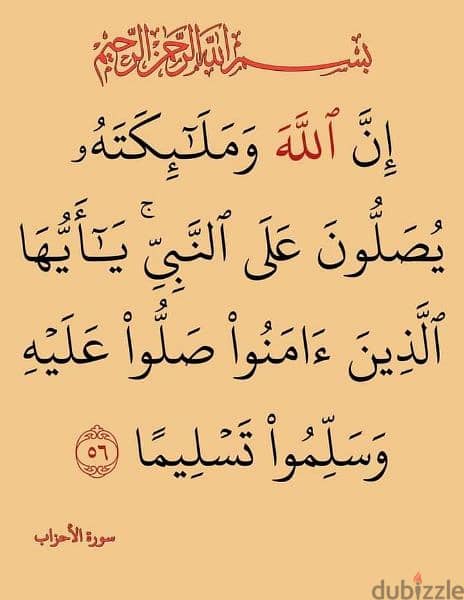 بسم الله الرحمن الرحيم
إِنَّ ٱللَّهَ وَمَلَٰٓئِكَتَهُۥ
يُصَلُّونَ عَلَى ٱلنَّبِىِّ ۚ يَٰٓأَيُّهَا
ٱلَّذِينَ ءَامَنُوا۟ صَلُّوا۟ عَلَيْهِ
وَسَلِّمُوا۟ تَسْلِيمًا ٥٦
سورة الأحزاب
dubizzle